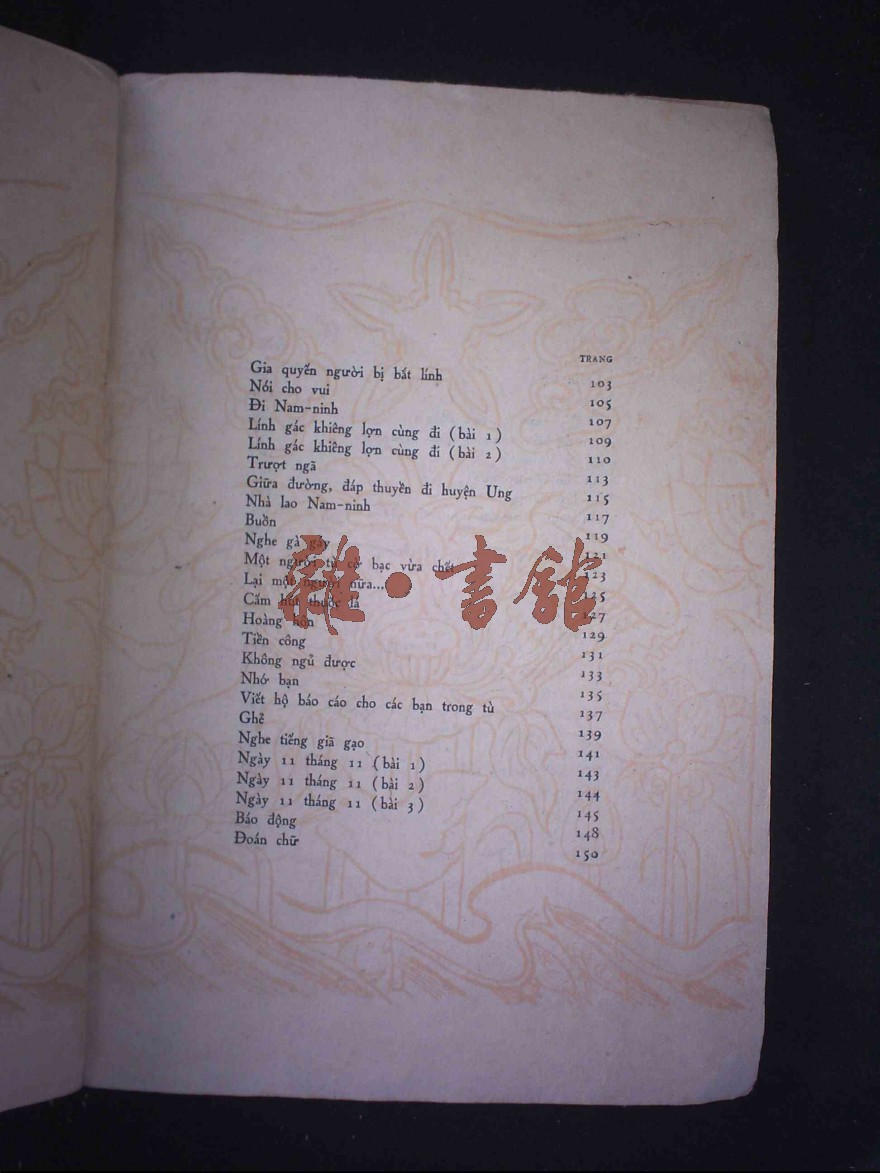 TRANG
Gia quyến người bị bắt lính 103
Nói cho vui 105
Đi Nam-ninh 107
Lính gác khiêng lợn cùng đi (bài 1) 109
Lính gác khiêng lợn cùng đi (bài 2) 110
Trượt ngã 113
Giữa đường, đáp thuyền đi huyện Ung 115
Nhà lao Nam-ninh 117
Buồn 119
Nghe gà gáy 121
Một người tù cờ bạc vừa chết 123
Lại một người nữa... 125
Cấm hút thuốc lá 127
Hoàng hôn 129
Tiền công 131
Không ngủ được 133
Nhớ bạn 135
Viết hộ báo cáo cho các bạn trong tù 137
Ghẻ 139
Nghe tiếng giã gạo 141
Ngày 11 tháng 11 (bài 1) 143
Ngày 11 tháng 11 (bài 2) 144
Ngày 11 tháng 11 (bài 3) 145
Báo động 148
Đoán chữ 150
雜·書館